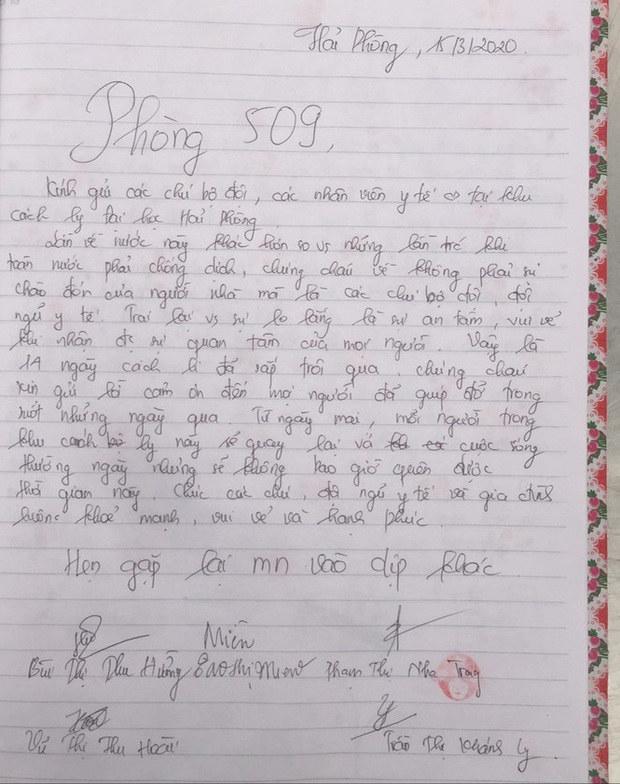 Hải Phòng, 15/3/2020.
Phòng 509,
Kính gửi các chú bộ đội, các nhân viên y tế ở tại khu
cách ly tại học Hải Phòng
Lần về nước này khác hơn so vs những lần trc khi
toàn nước phải chống dịch, chúng cháu về không phải sự
chào đón của người nhà mà là các chú bộ đội, đội
ngũ y tế. Trái lại vs sự lo lắng là sự an tâm, vui vẻ
khi nhận đc sự quan tâm của mọi người. Vậy là
14 ngày cách li đã sắp trôi qua. chúng cháu
xin gửi lời cảm ơn đến mọi người đã giúp đỡ trong
suốt những ngày qua. Từ ngày mai, mỗi người trong
khu cách ly này sẽ quay lại với cuộc sống
thường ngày nhưng sẽ không bao giờ quên được
thời gian này. Chúc các chú, đội ngũ y tế và gia đình
luôn khoẻ mạnh, vui vẻ và hạnh phúc.
Hẹn gặp lại mn vào dịp khác
Miên
Bùi Thị Thu Hường Đào Thị Miên Phạm Thị Nha Trang
Vũ Thị Thu Hoài Trần Thị Khánh Ly.